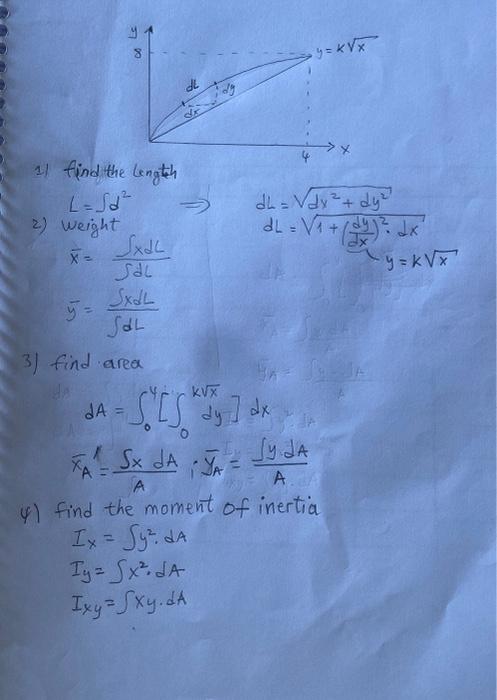 y
8
y = k√x
dL
dy
dx
4
x
1) find the length
L = ∫d² ⇒ dL = √dx² + dy²
dL = √1 + (dy/dx)² · dx
y = k√x
2) weight
x̄ = ∫xdL / ∫dL
ȳ = ∫xdL / ∫dL
3) find area
dA = ∫₀⁴ [∫₀^k√x dy] dx
x̄A = ∫x dA / A ; ȳA = ∫y·dA / A
4) find the moment of inertia
Ix = ∫y². dA
Iy = ∫x². dA
Ixy = ∫xy. dA